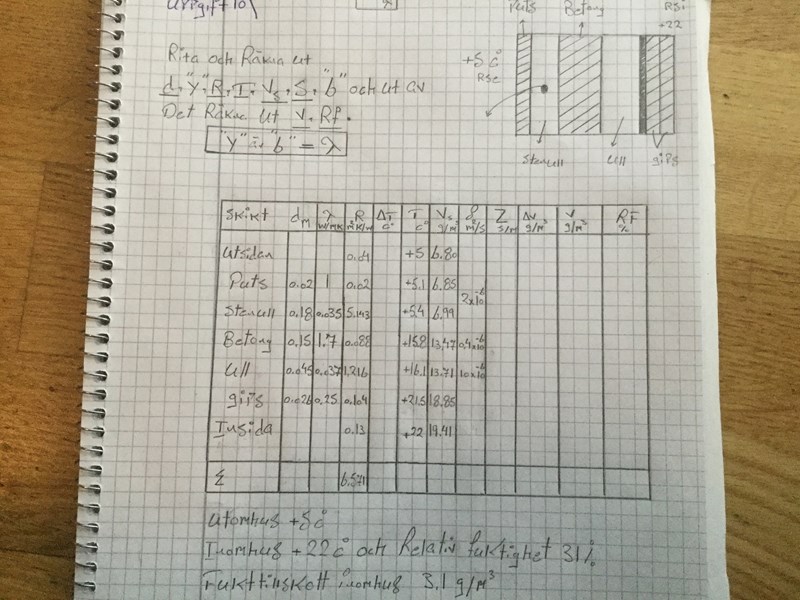 Uppgift 10
Puts Betong Rsi
+22
+5 c°
Rse
Stenull Ull gips
Rita och Räkna ut
d, "y", R, T, Vs, S, "b" och ut av
Det Räkna ut V, Rf.
"y" = "b" = λ
Skikt dm λ w/mk R m²k/w ΔT c° T c° Vs g/m³ δ m²/s Z s/m Δv g/m³ v g/m³ RF %
Utsidan 0.04 +5 6.80
Puts 0.02 1 0.02 +5.1 6.85
2x10⁻⁶
Stenull 0.18 0.035 5.143 +5.4 6.99
Betong 0.15 1.7 0.088 +15.8 13.47 0.4x10⁻⁶
Ull 0.045 0.037 1.216 +16.1 13.71 10x10⁻⁶
gips 0.026 0.25 0.104 +21.5 18.85
Insida 0.13 +22 19.41
Σ 6.571
Utomhus +5c°
Inomhus +22c° och Relativ fuktighet 31%
Fukttillskott inomhus 3.1 g/m³